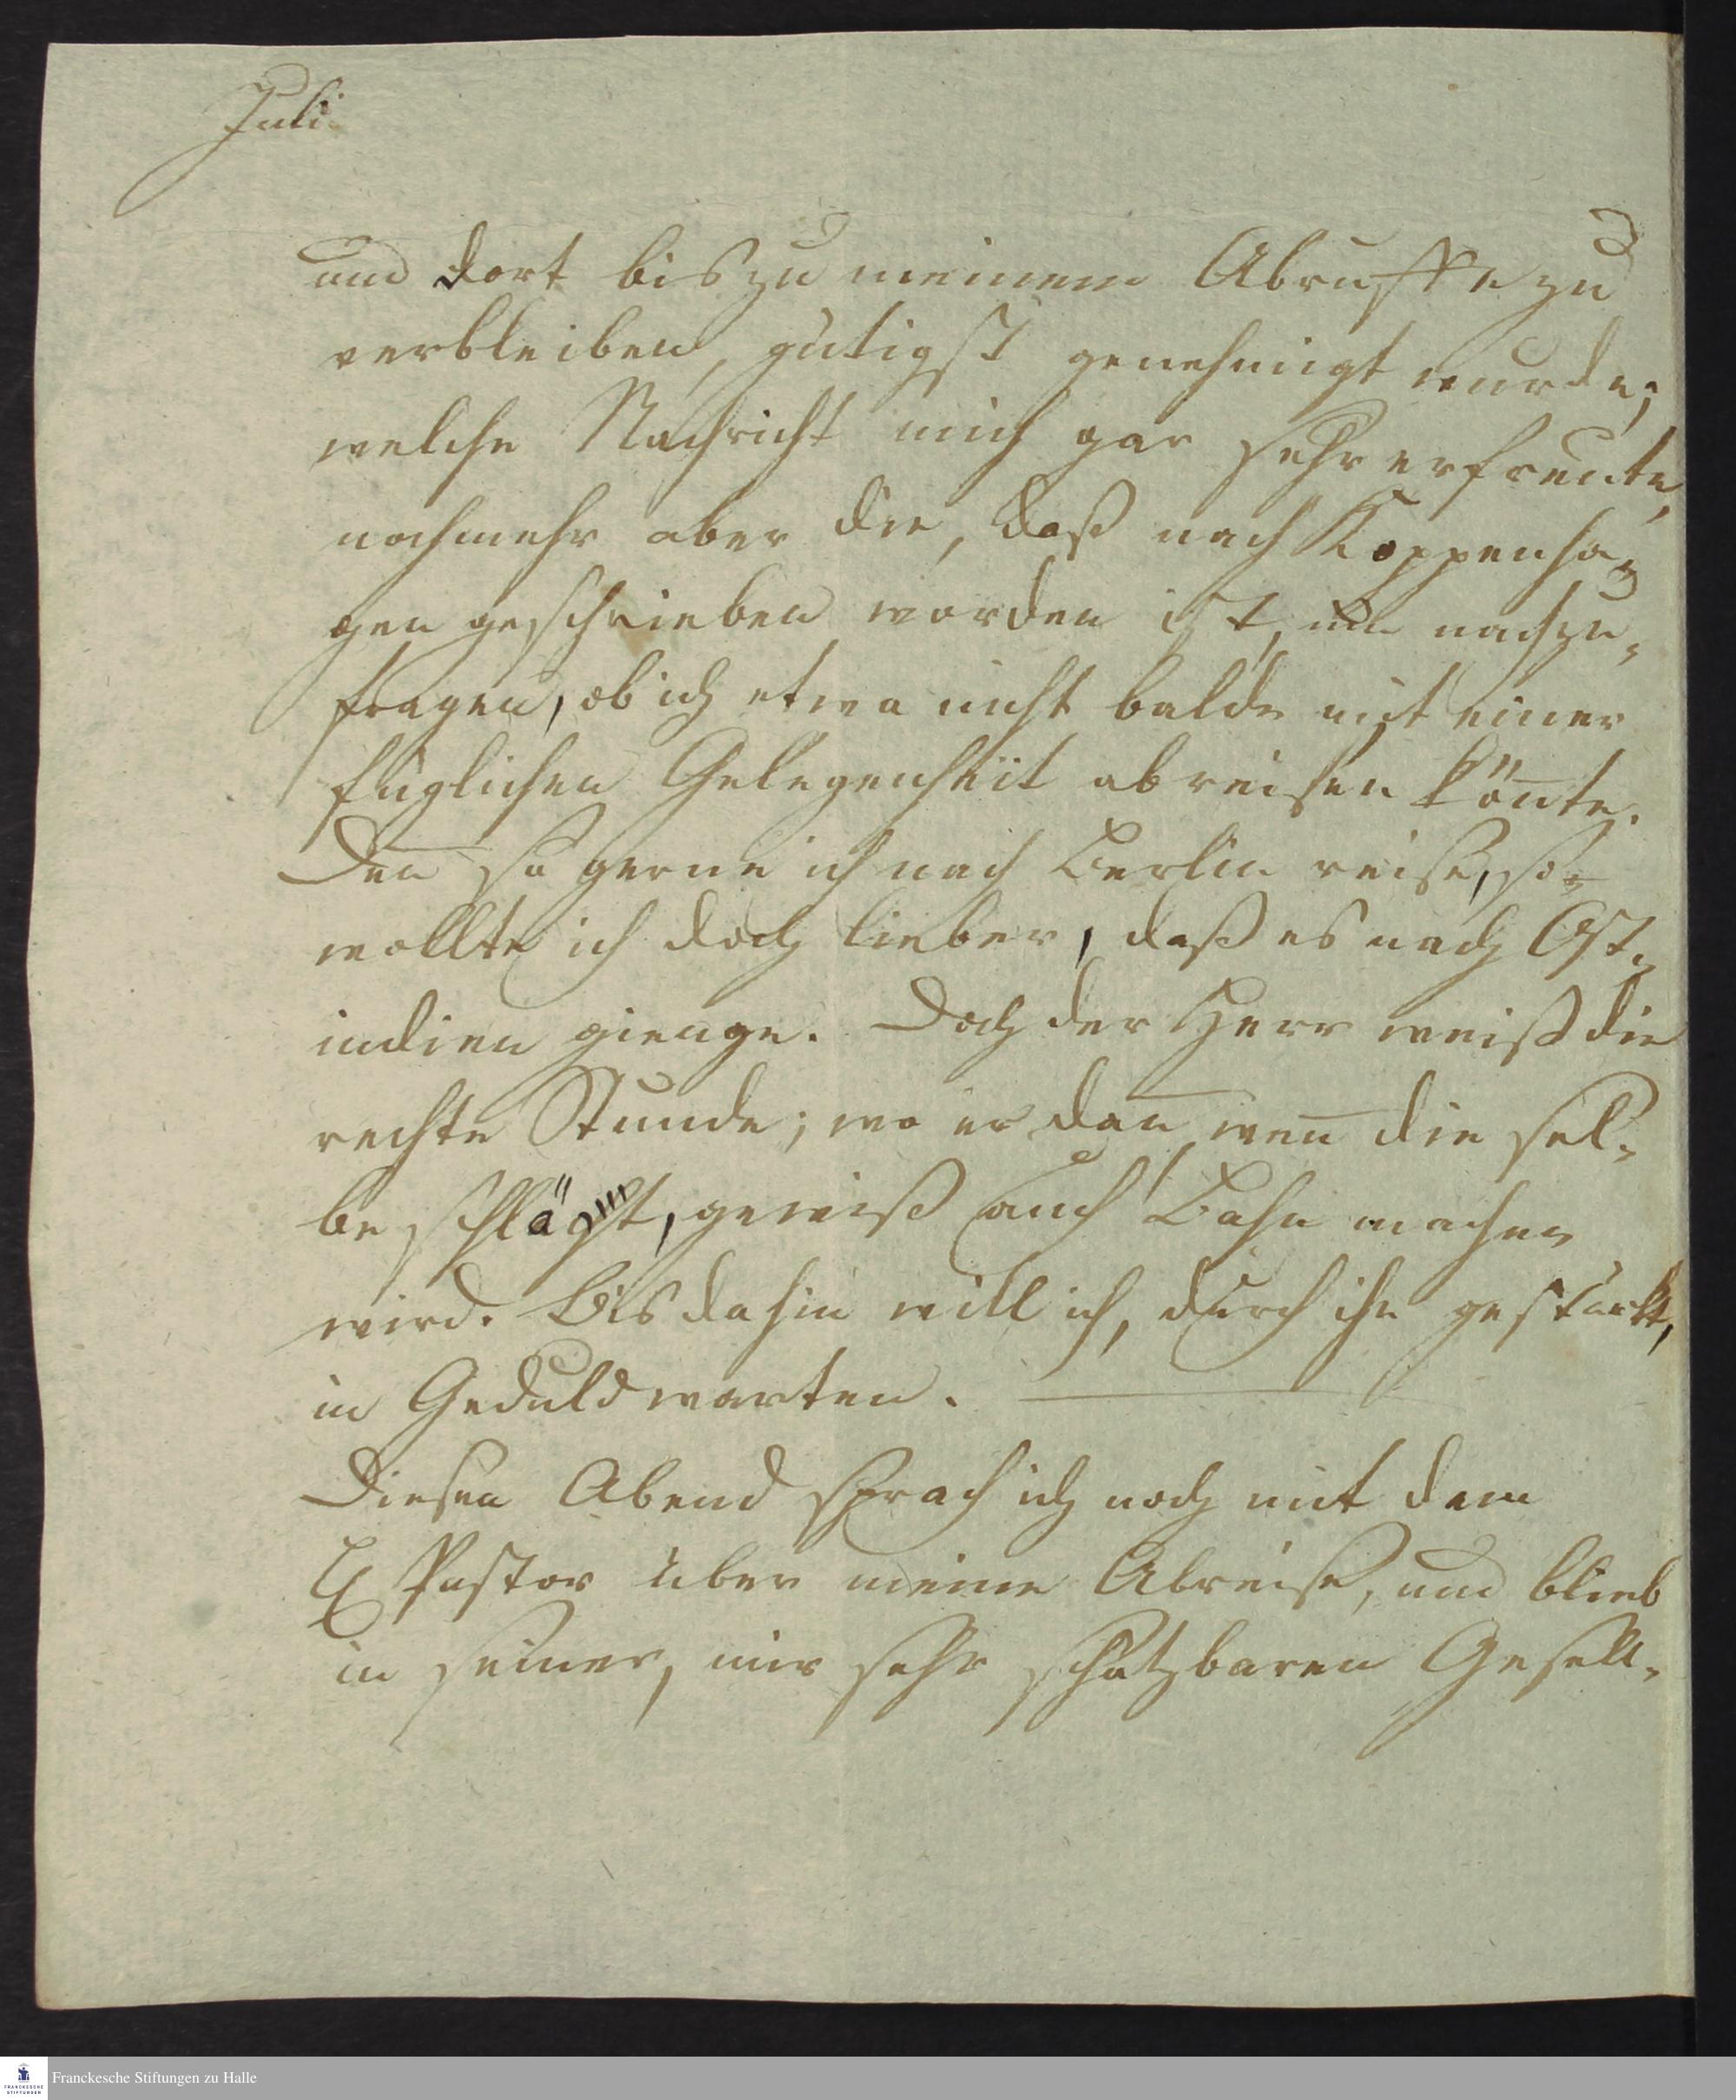 Juli.
und dort bis zu meinem Abruffe zu
verbleiben, gütigst genehmigt wurde;
welche Nachricht mich gar sehr erfreute,
nochmehr aber die, daß nach Koppenha-
gen geschrieben worden ist, um nachzu-
fragen, ob ich etwa nicht balde mit einer
füglichen Gelegenheit abreisen kön̅te.
Den̅ so gerne ich nach Berlin reise, so
wollte ich doch lieber, daß es nach Ost-
indien gienge. Doch der Herr weiß die
rechte Stunde; wo er dan̅ wen̅ die sel-
be schlägt, gewiß auch Bahn machen
wird. Bis dahin will ich, durch ihn gestärkt,
in Geduld warten. —
Diesen Abend sprach ich noch mit dem
H Pastor über meine Abreise, und blieb
in seiner, mir sehr schätzbaren Gesell-
Franckesche Stiftungen zu Halle
FRANCKESCHE
STIFTUNGEN